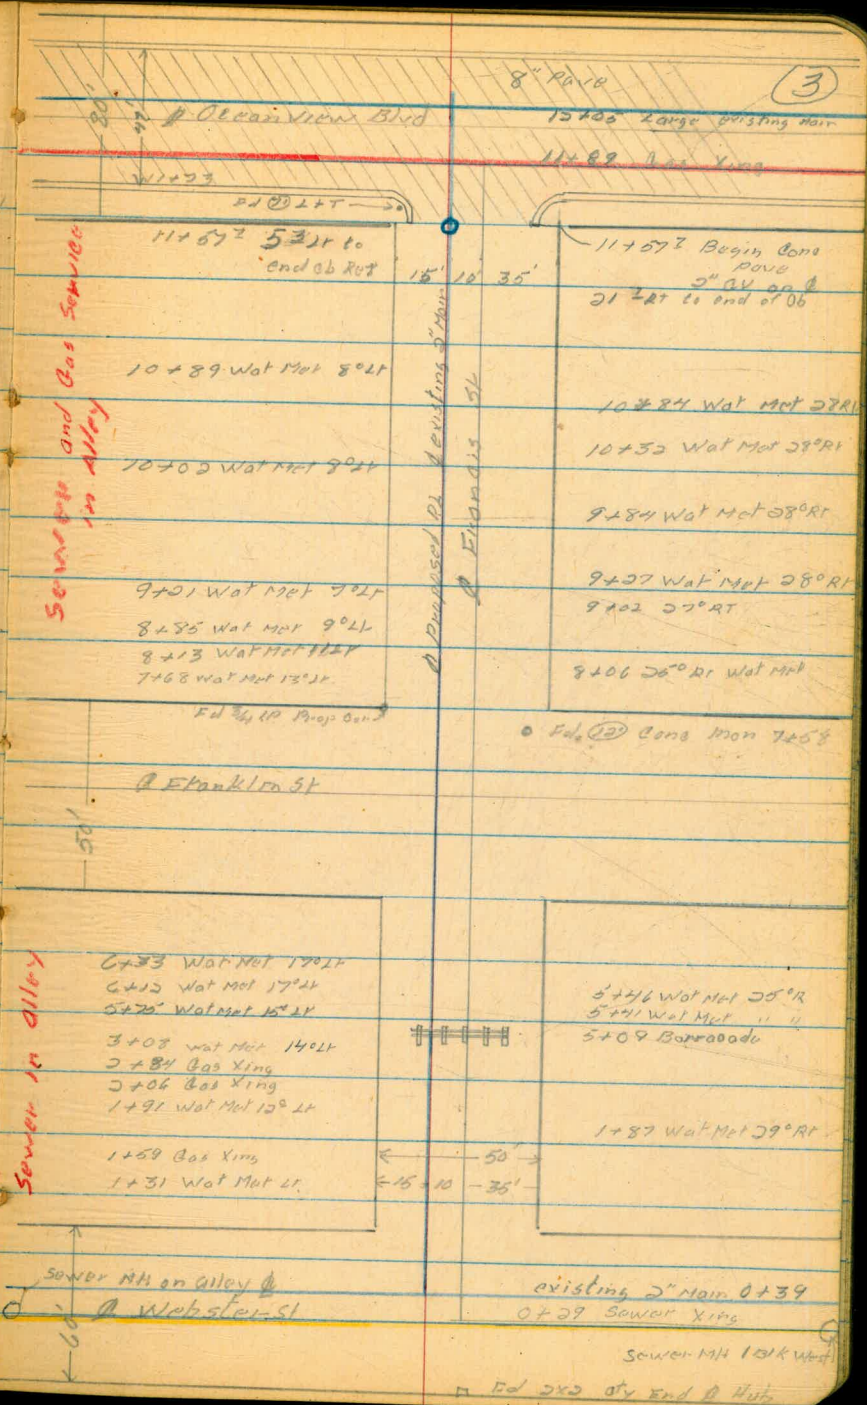 3
8" Pave
80'
℄ Oceanview Blvd
12+05 Large existing Main
11+89 Gas Xing
W1+23
Fd L+T
11+57² 5³ Lt to
end Cb Ret
15' 10' 35'
11+57² Begin Conc
Pave
2" GV on ℄
21² Rt to end of Cb
Sewer and Gas Service
in Alley
10+89 Wat Met 8° Lt
10+84 Wat Met 28 Rt
10+32 Wat Met 28° Rt
10+02 Wat Met 8° Lt
9+84 Wat Met 28° Rt
℄ Proposed RL & existing 2" Main
℄ Francis St
9+21 Wat Met 7° Lt
8+85 Wat Met 9° Lt
8+13 Wat Met 11 Lt
7+68 Wat Met 13° Lt
9+27 Wat Met 28° Rt
9+02 27° RT
8+06 25° Rt Wat Met
Fd 3/4 IP Prop Cor
Fd. Conc Mon 7+58
℄ Franklin St
50'
Sewer in Alley
6+33 Wat Met 17° Lt
6+12 Wat Met 17° Lt
5+75 Wat Met 15° Lt
3+08 Wat Met 14° Lt
2+84 Gas Xing
2+06 Gas Xing
1+91 Wat Met 12° Lt
1+59 Gas Xing
1+31 Wat Met Lt
5+46 Wat Met 25° R
5+41 Wat Met " "
5+09 Barracade
1+87 Wat Met 29° Rt
50'
15 10 35'
Sewer MH on Alley ℄
℄ Webster St
60'
existing 2" Main 0+39
0+29 Sewer Xing
Sewer MH 1 Blk West
Fd 2x2 Cty End ℄ Hub